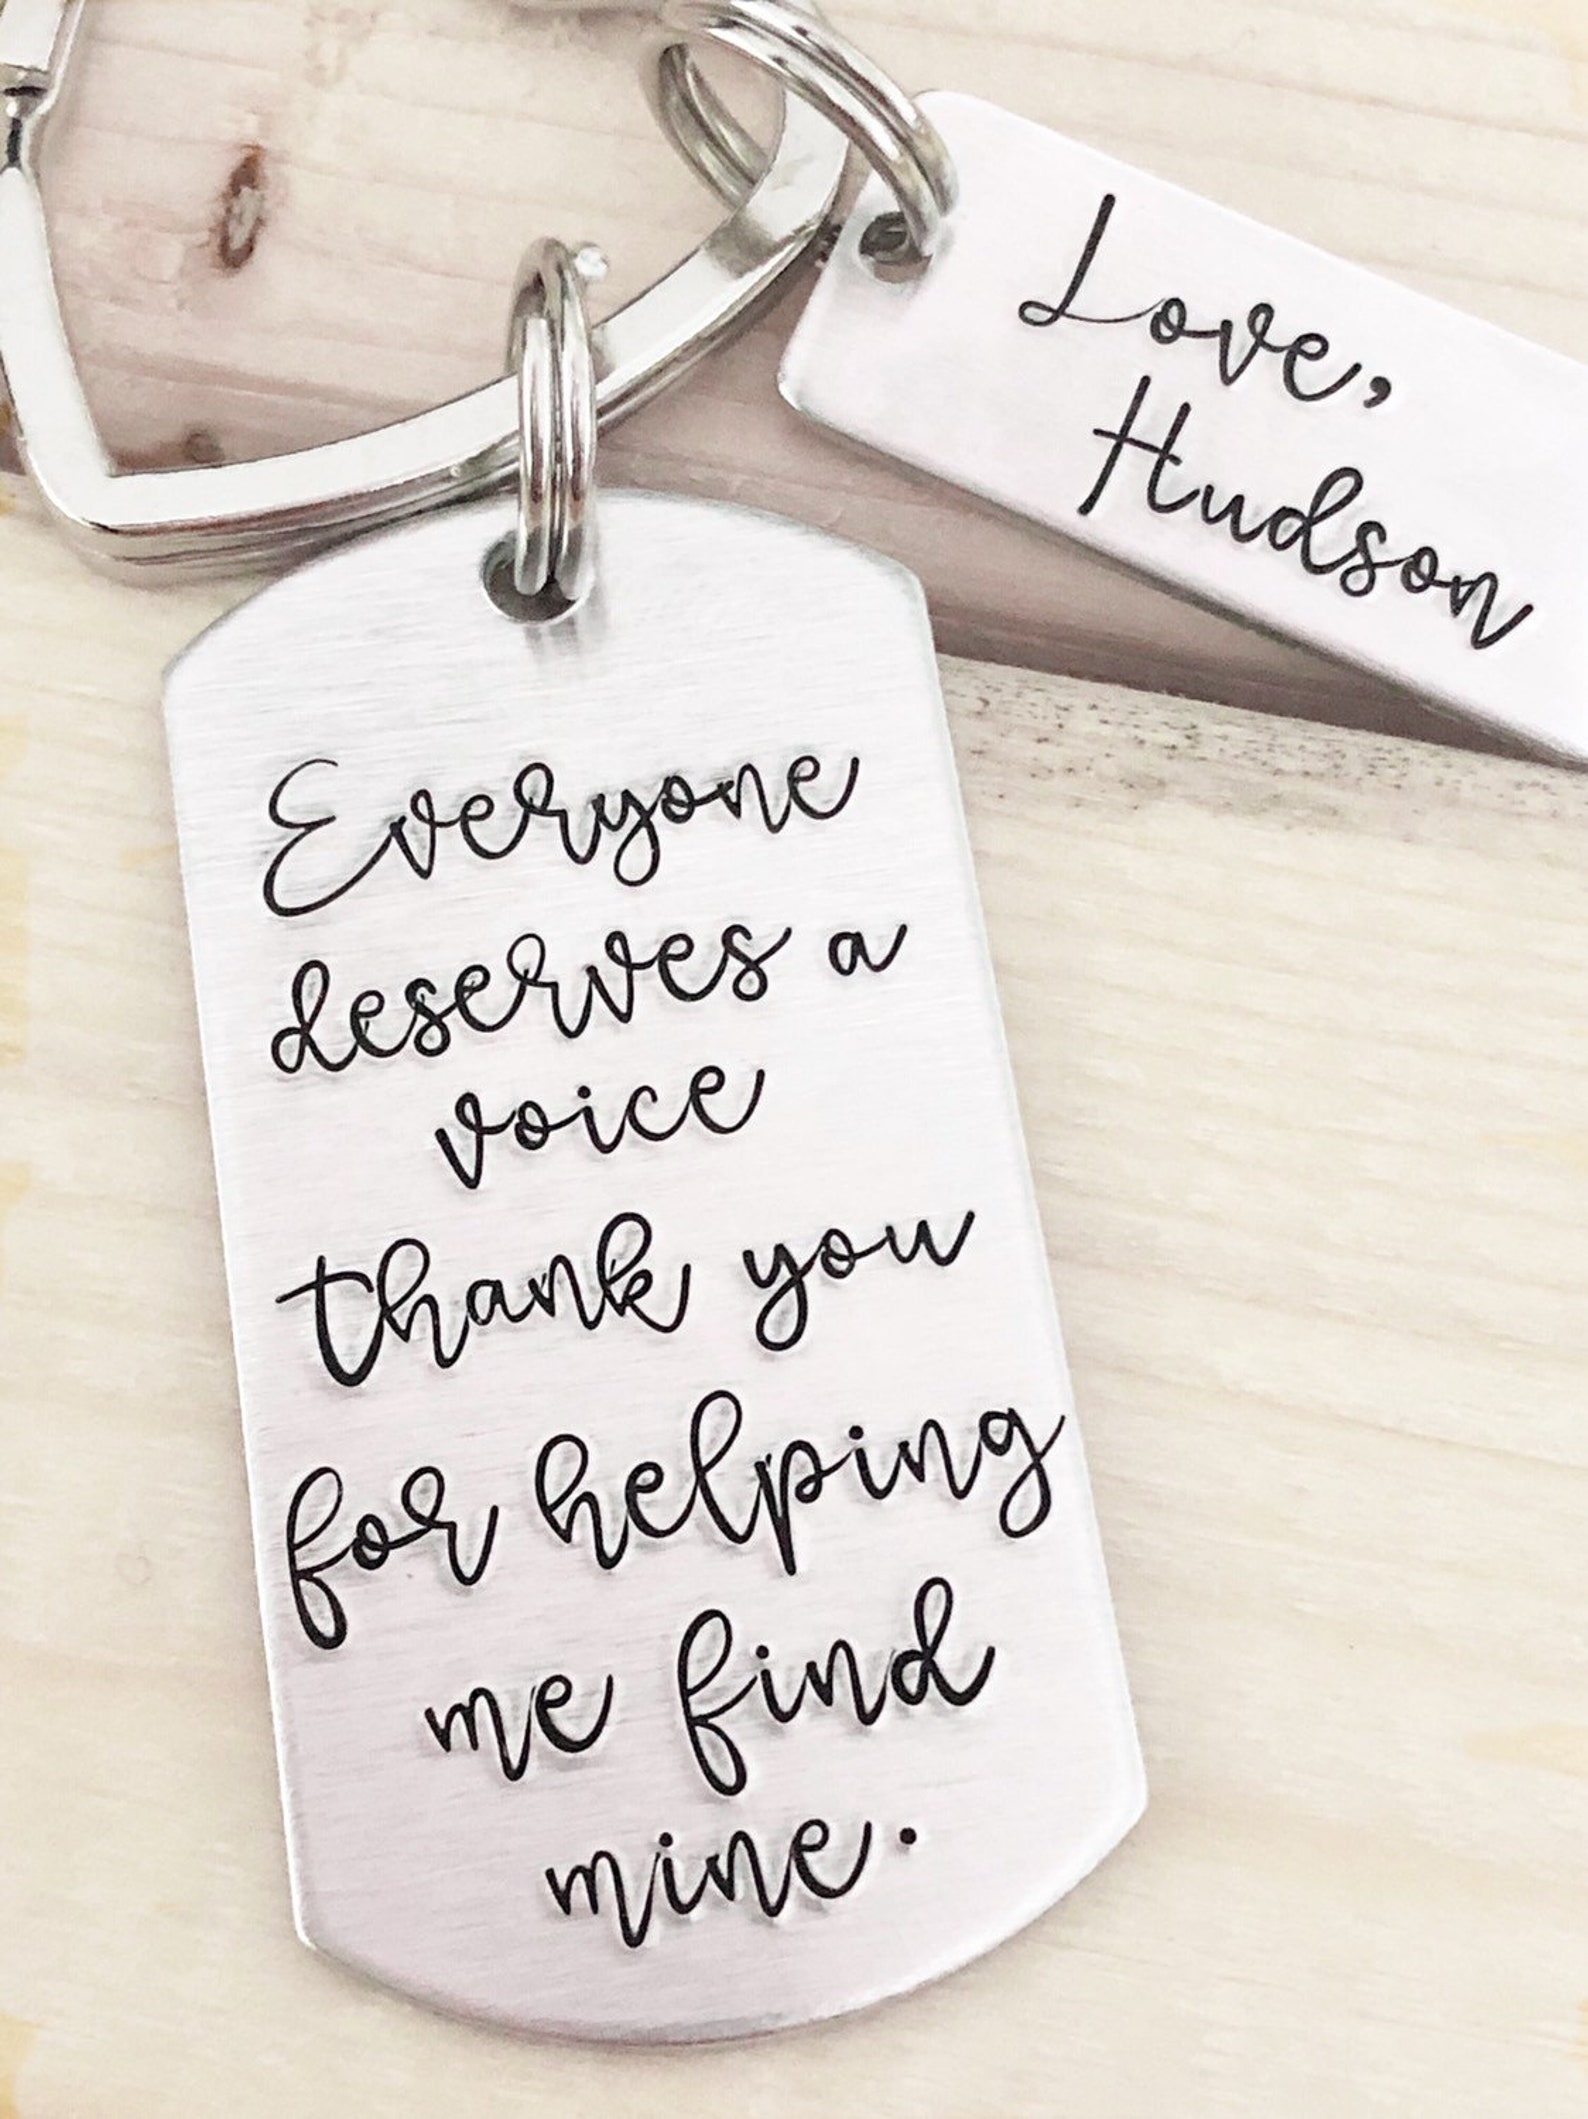 Love,
Hudson
Everyone
deserves a
voice
thank you
for helping
me find
mine.